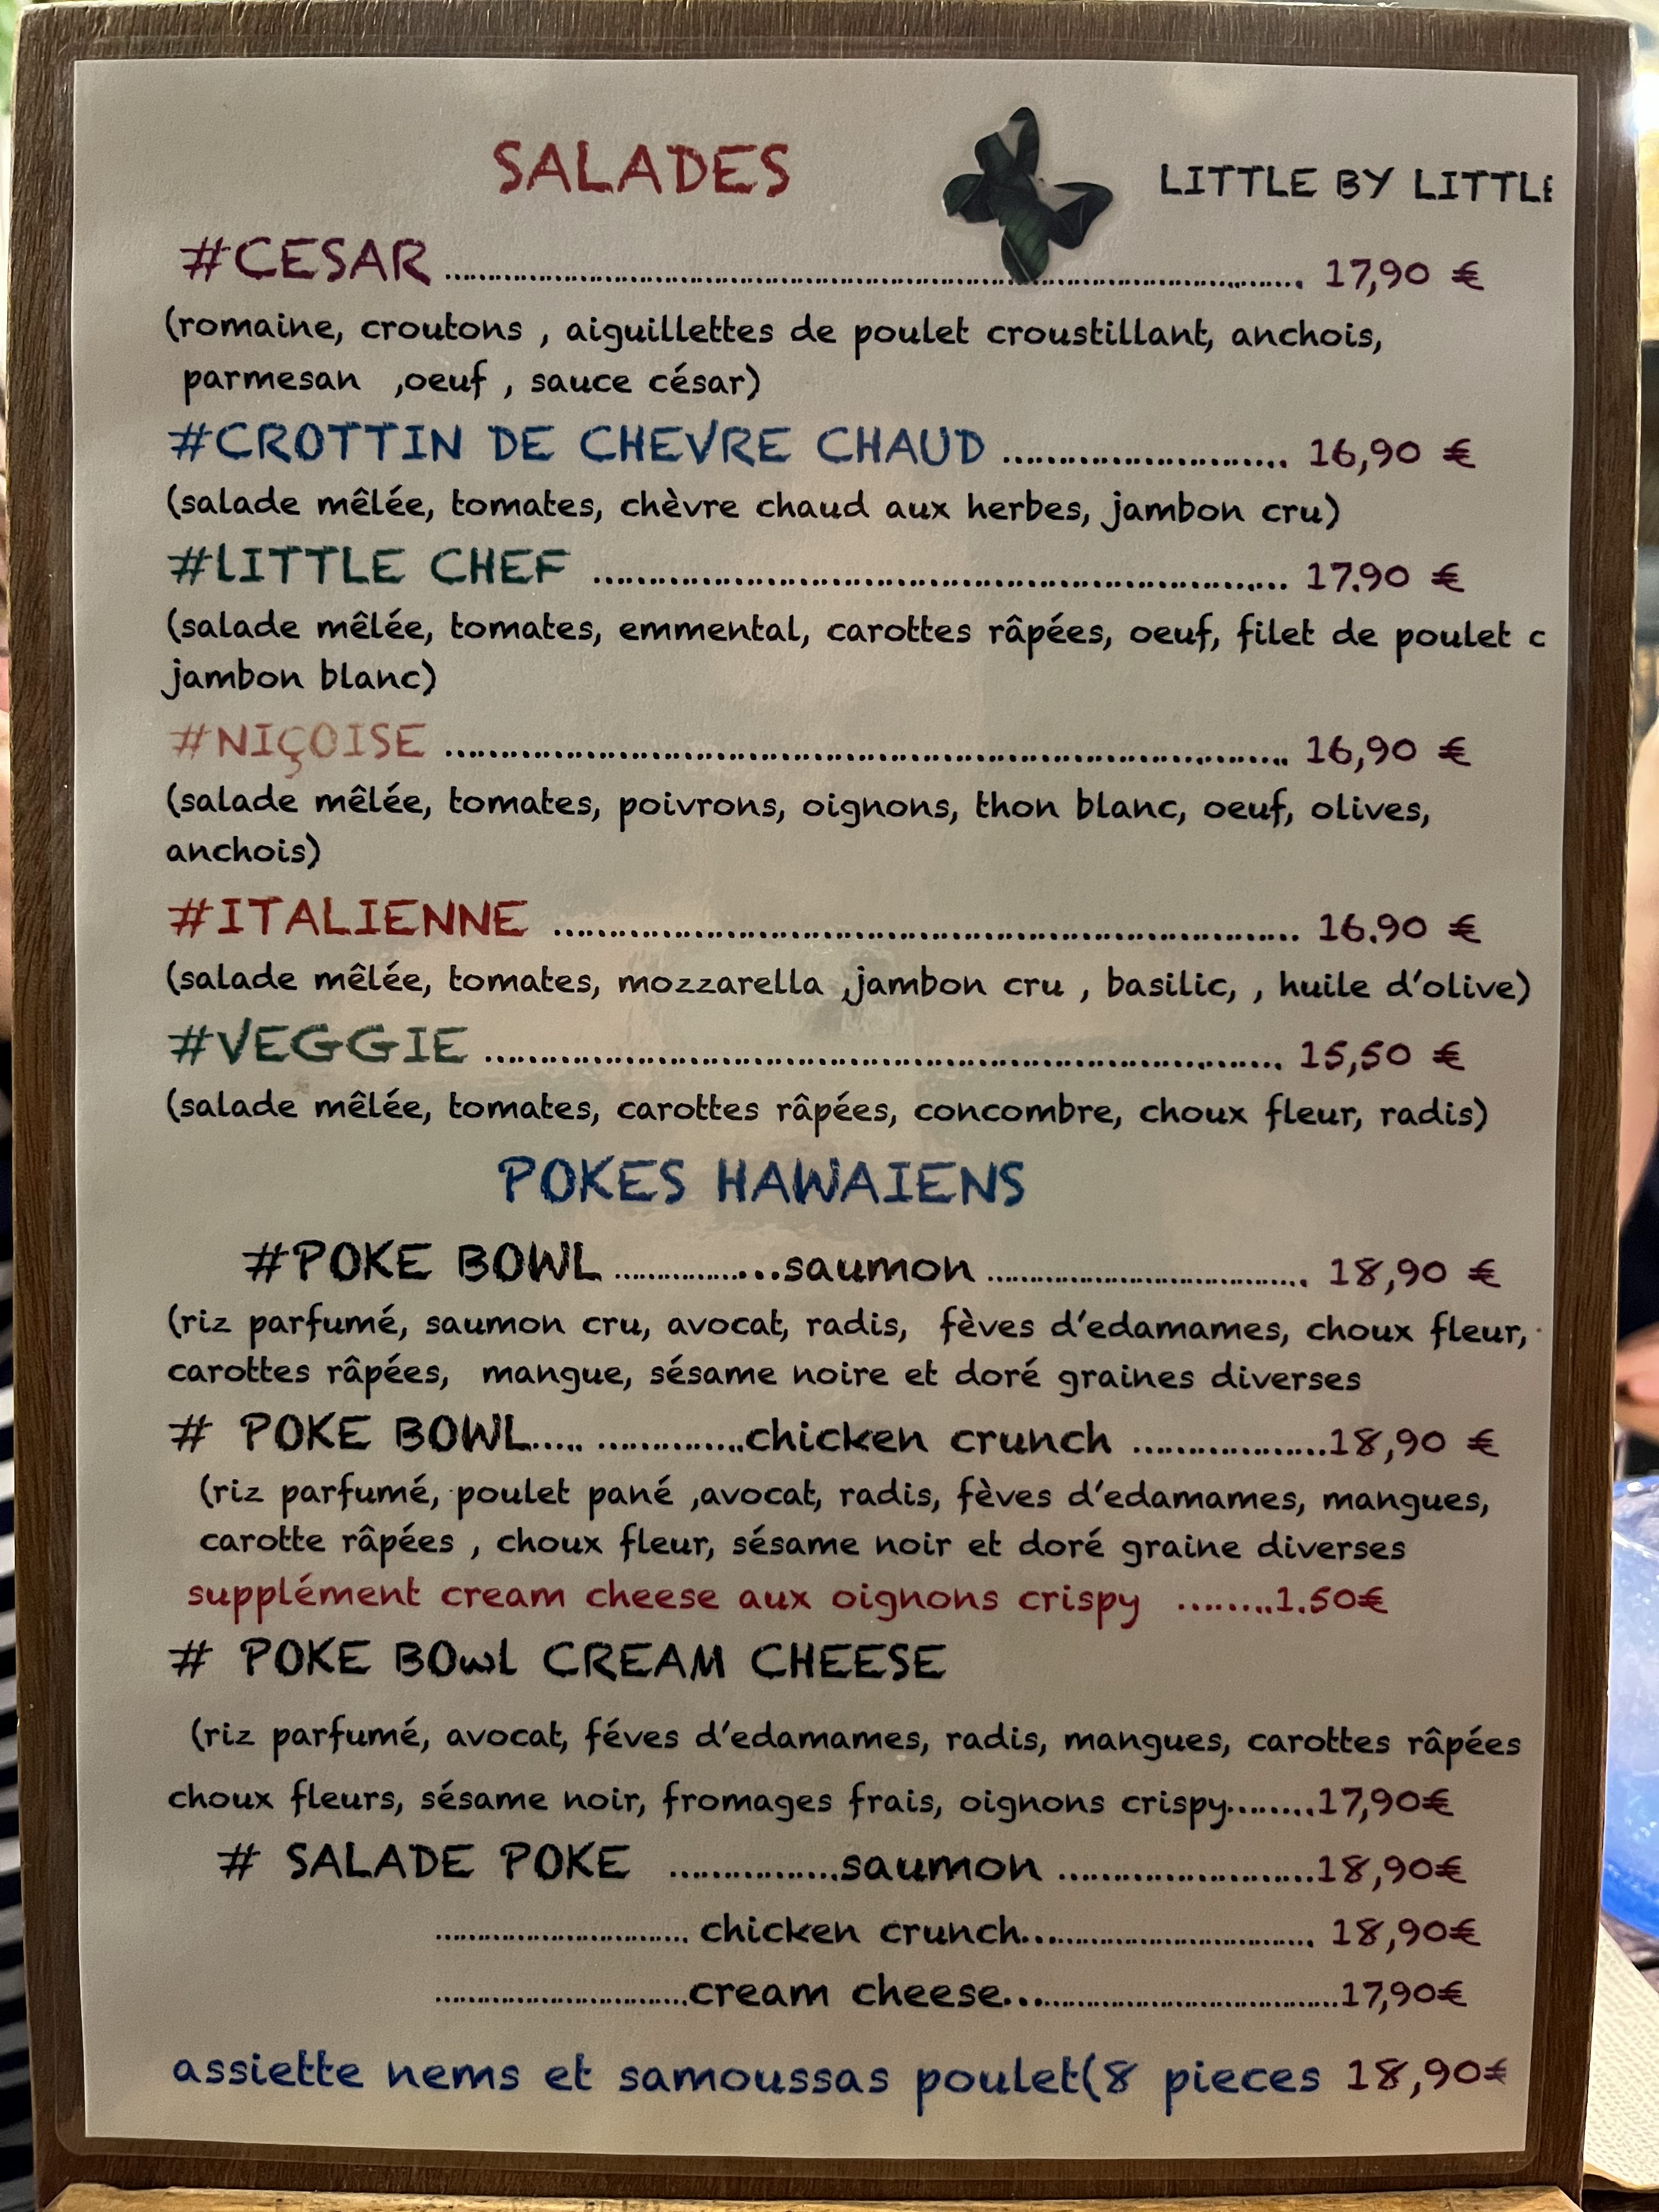 SALADES
LITTLE BY LITTLE
#CESAR ........................................ 17,90 €
(romaine, croutons , aiguillettes de poulet croustillant, anchois,
parmesan ,oeuf , sauce césar)
#CROTTIN DE CHEVRE CHAUD ........................ 16,90 €
(salade mêlée, tomates, chèvre chaud aux herbes, jambon cru)
#LITTLE CHEF ........................................ 17.90 €
(salade mêlée, tomates, emmental, carottes râpées, oeuf, filet de poulet c
jambon blanc)
#NIÇOISE ........................................ 16,90 €
(salade mêlée, tomates, poivrons, oignons, thon blanc, oeuf, olives,
anchois)
#ITALIENNE ........................................ 16.90 €
(salade mêlée, tomates, mozzarella ,jambon cru , basilic, , huile d'olive)
#VEGGIE ........................................ 15,50 €
(salade mêlée, tomates, carottes râpées, concombre, choux fleur, radis)
POKES HAWAIENS
#POKE BOWL ..................saumon ........................ 18,90 €
(riz parfumé, saumon cru, avocat, radis, fèves d'edamames, choux fleur,
carottes râpées, mangue, sésame noire et doré graines diverses
# POKE BOWL..... ..............chicken crunch ..................18,90 €
(riz parfumé, poulet pané ,avocat, radis, fèves d'edamames, mangues,
carotte râpées , choux fleur, sésame noir et doré graine diverses
supplément cream cheese aux oignons crispy .........1.50€
# POKE BOwl CREAM CHEESE
(riz parfumé, avocat, féves d'edamames, radis, mangues, carottes râpées
choux fleurs, sésame noir, fromages frais, oignons crispy.........17,90€
# SALADE POKE ................saumon ........................18,90€
........................ chicken crunch........................ 18,90€
........................cream cheese...........................17,90€
assiette nems et samoussas poulet(8 pieces 18,90€